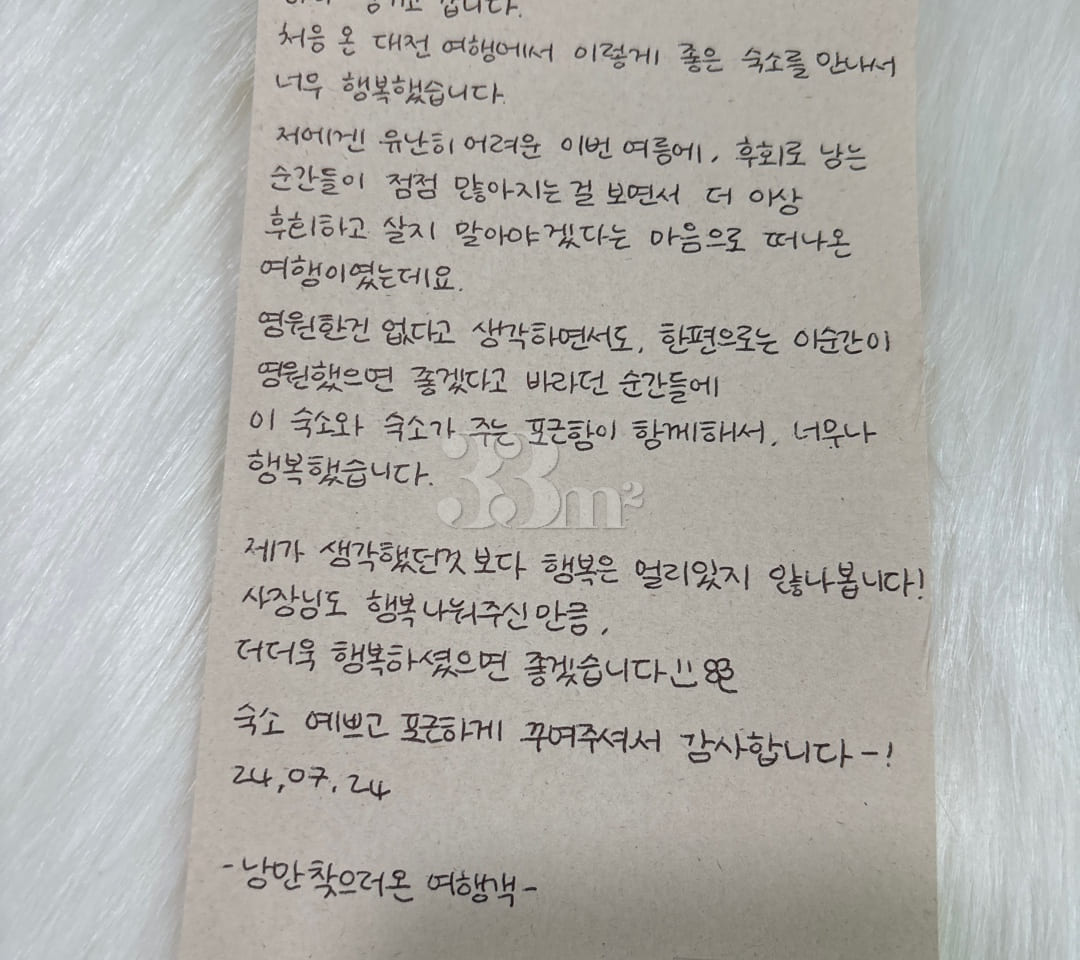 갑니다.
처음 온 대전 여행에서 이렇게 좋은 숙소를 만나서
너무 행복했습니다.
저에겐 유난히 어려운 이번 여름에, 후회로 남는
순간들이 점점 많아지는걸 보면서 더 이상
후회하고 살지 말아야겠다는 마음으로 떠나온
여행이였는데요.
영원한건 없다고 생각하면서도, 한편으로는 이순간이
영원했으면 좋겠다고 바라던 순간들에
이 숙소와 숙소가 주는 포근함이 함께해서, 너무나
행복했습니다.
33m²
제가 생각했던것 보다 행복은 멀리있지 않나봅니다!
사장님도 행복나눠주신만큼,
더더욱 행복하셨으면 좋겠습니다!!
숙소 예쁘고 포근하게 꾸며주셔서 감사합니다-!
24.07.24
-낭만찾으러온 여행객-